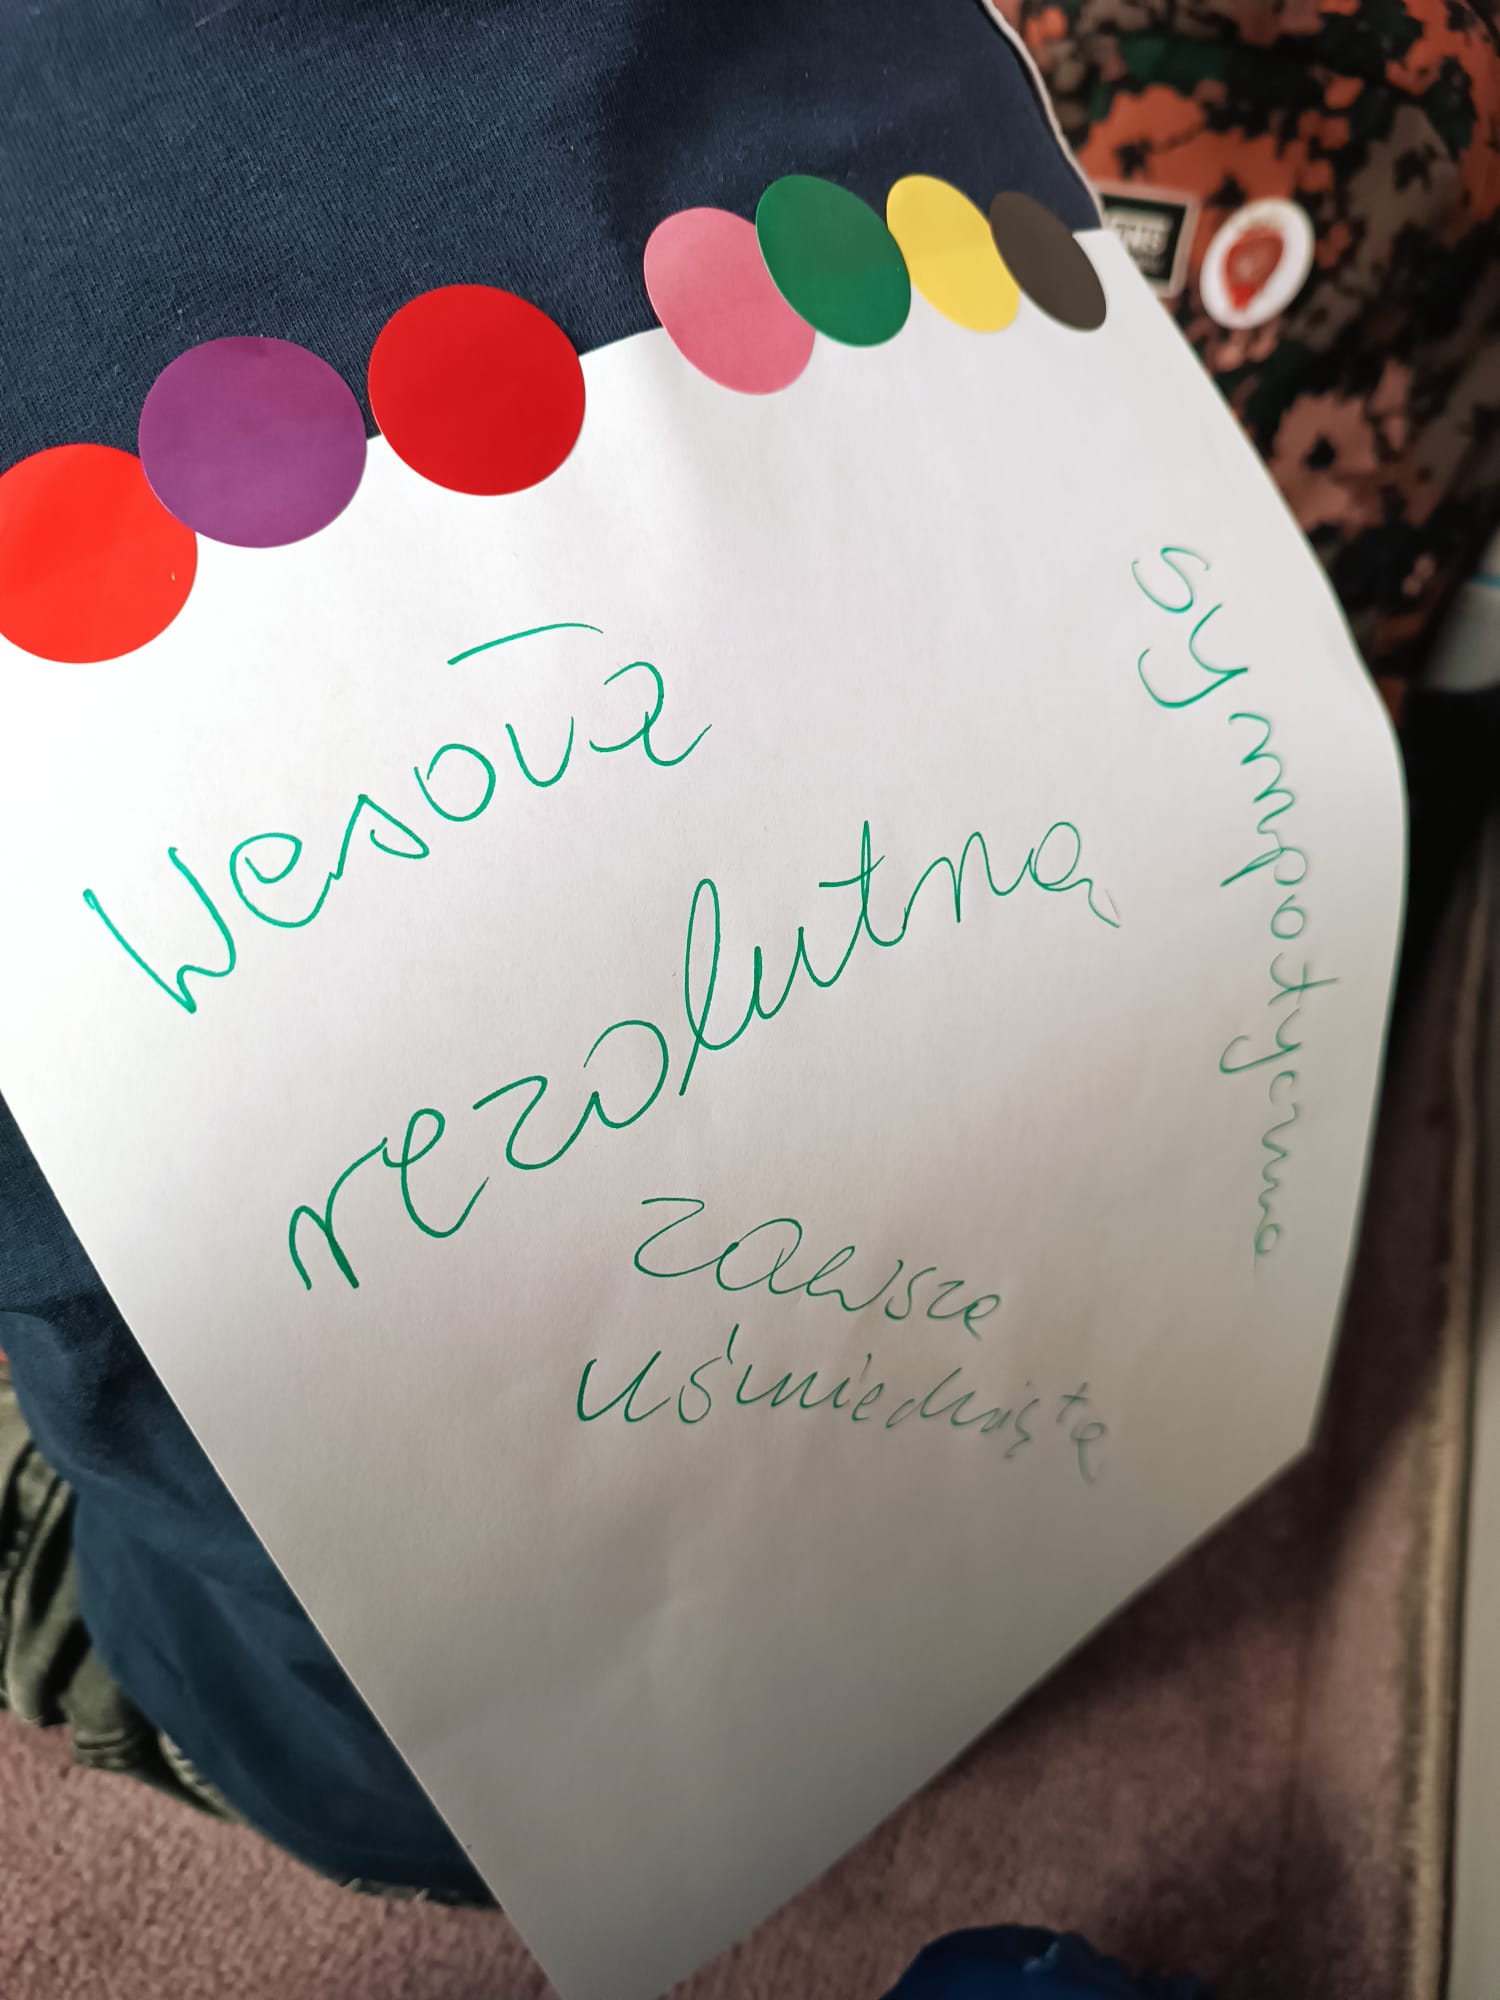 Wesoła
rezolutna
zawsze
uśmiechnięta
sympatyczna